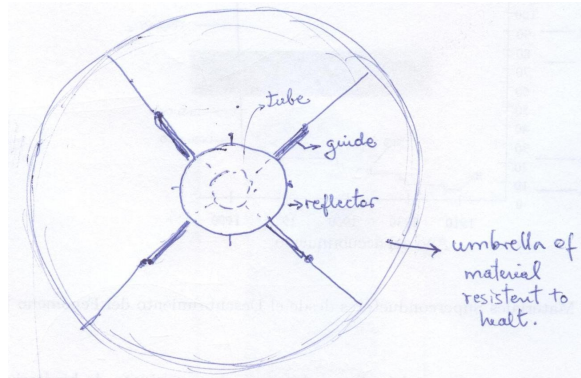 tube
guide
reflector
umbrella of
material
resistent to
healt.